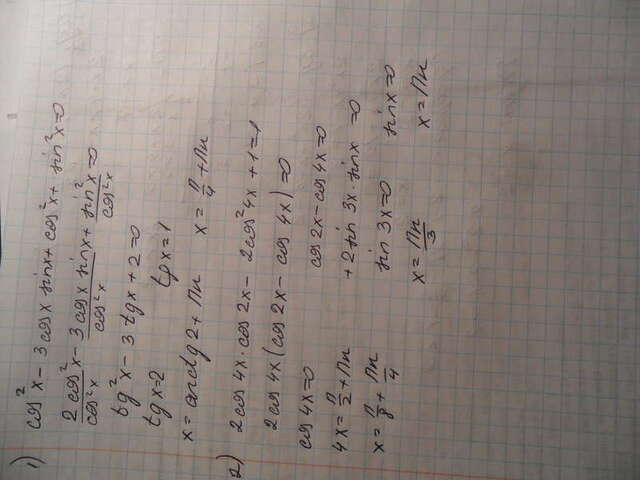 1) cos²x - 3cosx sinx + cos²x + sin²x = 0
2cos²x/cos²x - 3cosx sinx/cos²x + sin²x/cos²x = 0
tg²x - 3tgx + 2 = 0
tgx = 2 tgx = 1
x = arctg2 + Пn x = П/4 + Пn
2) 2cos4x · cos2x - 2cos²4x + 1 = 1
2cos4x(cos2x - cos4x) = 0
cos4x = 0 cos2x - cos4x = 0
4x = П/2 + Пn +2sin3x · sinx = 0
x = П/8 + Пn/4 sin3x = 0 sinx = 0
x = Пn/3 x = Пn